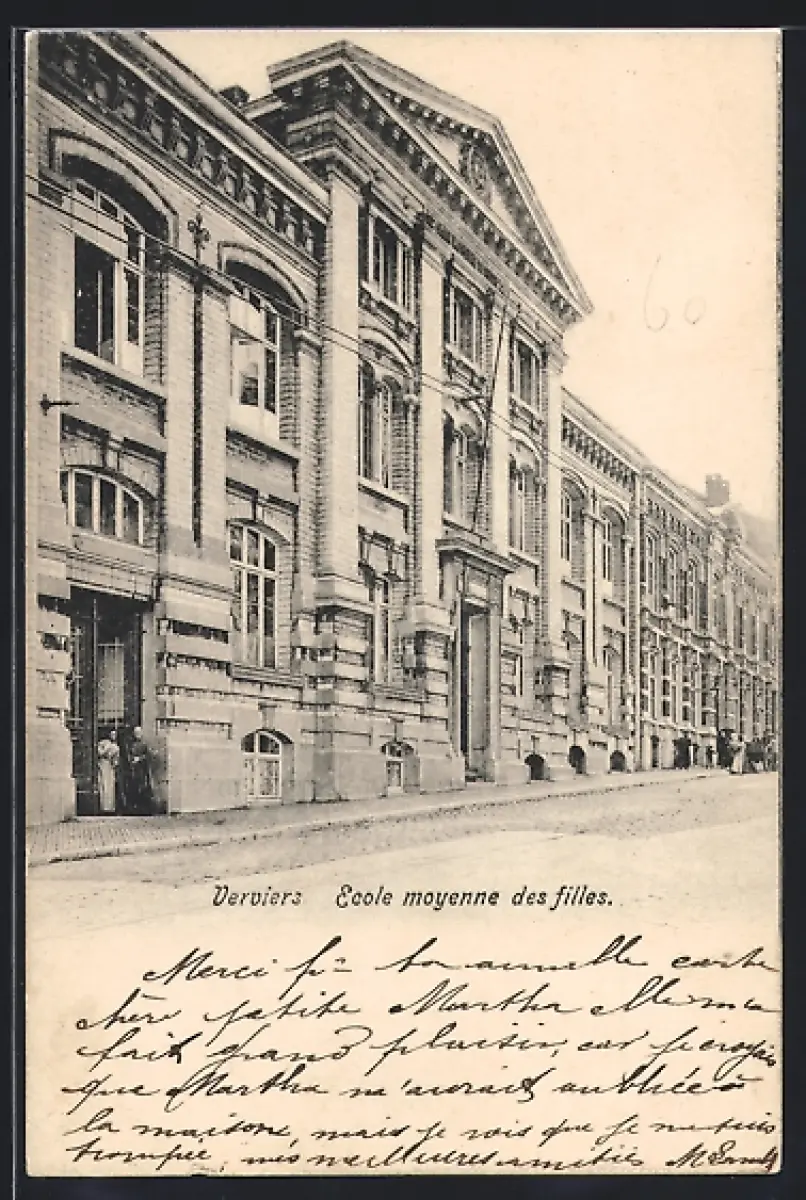 60
Verviers Ecole moyenne des filles.
Merci pr ta carte
chère petite Martha elle m'a
fait grand plaisir, car je croyais
que Martha m'aurait oubliée à
la maison, mais je vois que je me suis
trompée, mes meilleures amitiés